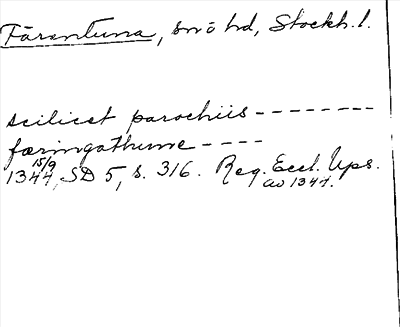 Färentuna, snö hd, Stockh. l.
scilicet parochiis --------
færingathune ----
15/9
1344, SD 5, s. 316. Reg. Eccl. Ups.
av 1344.